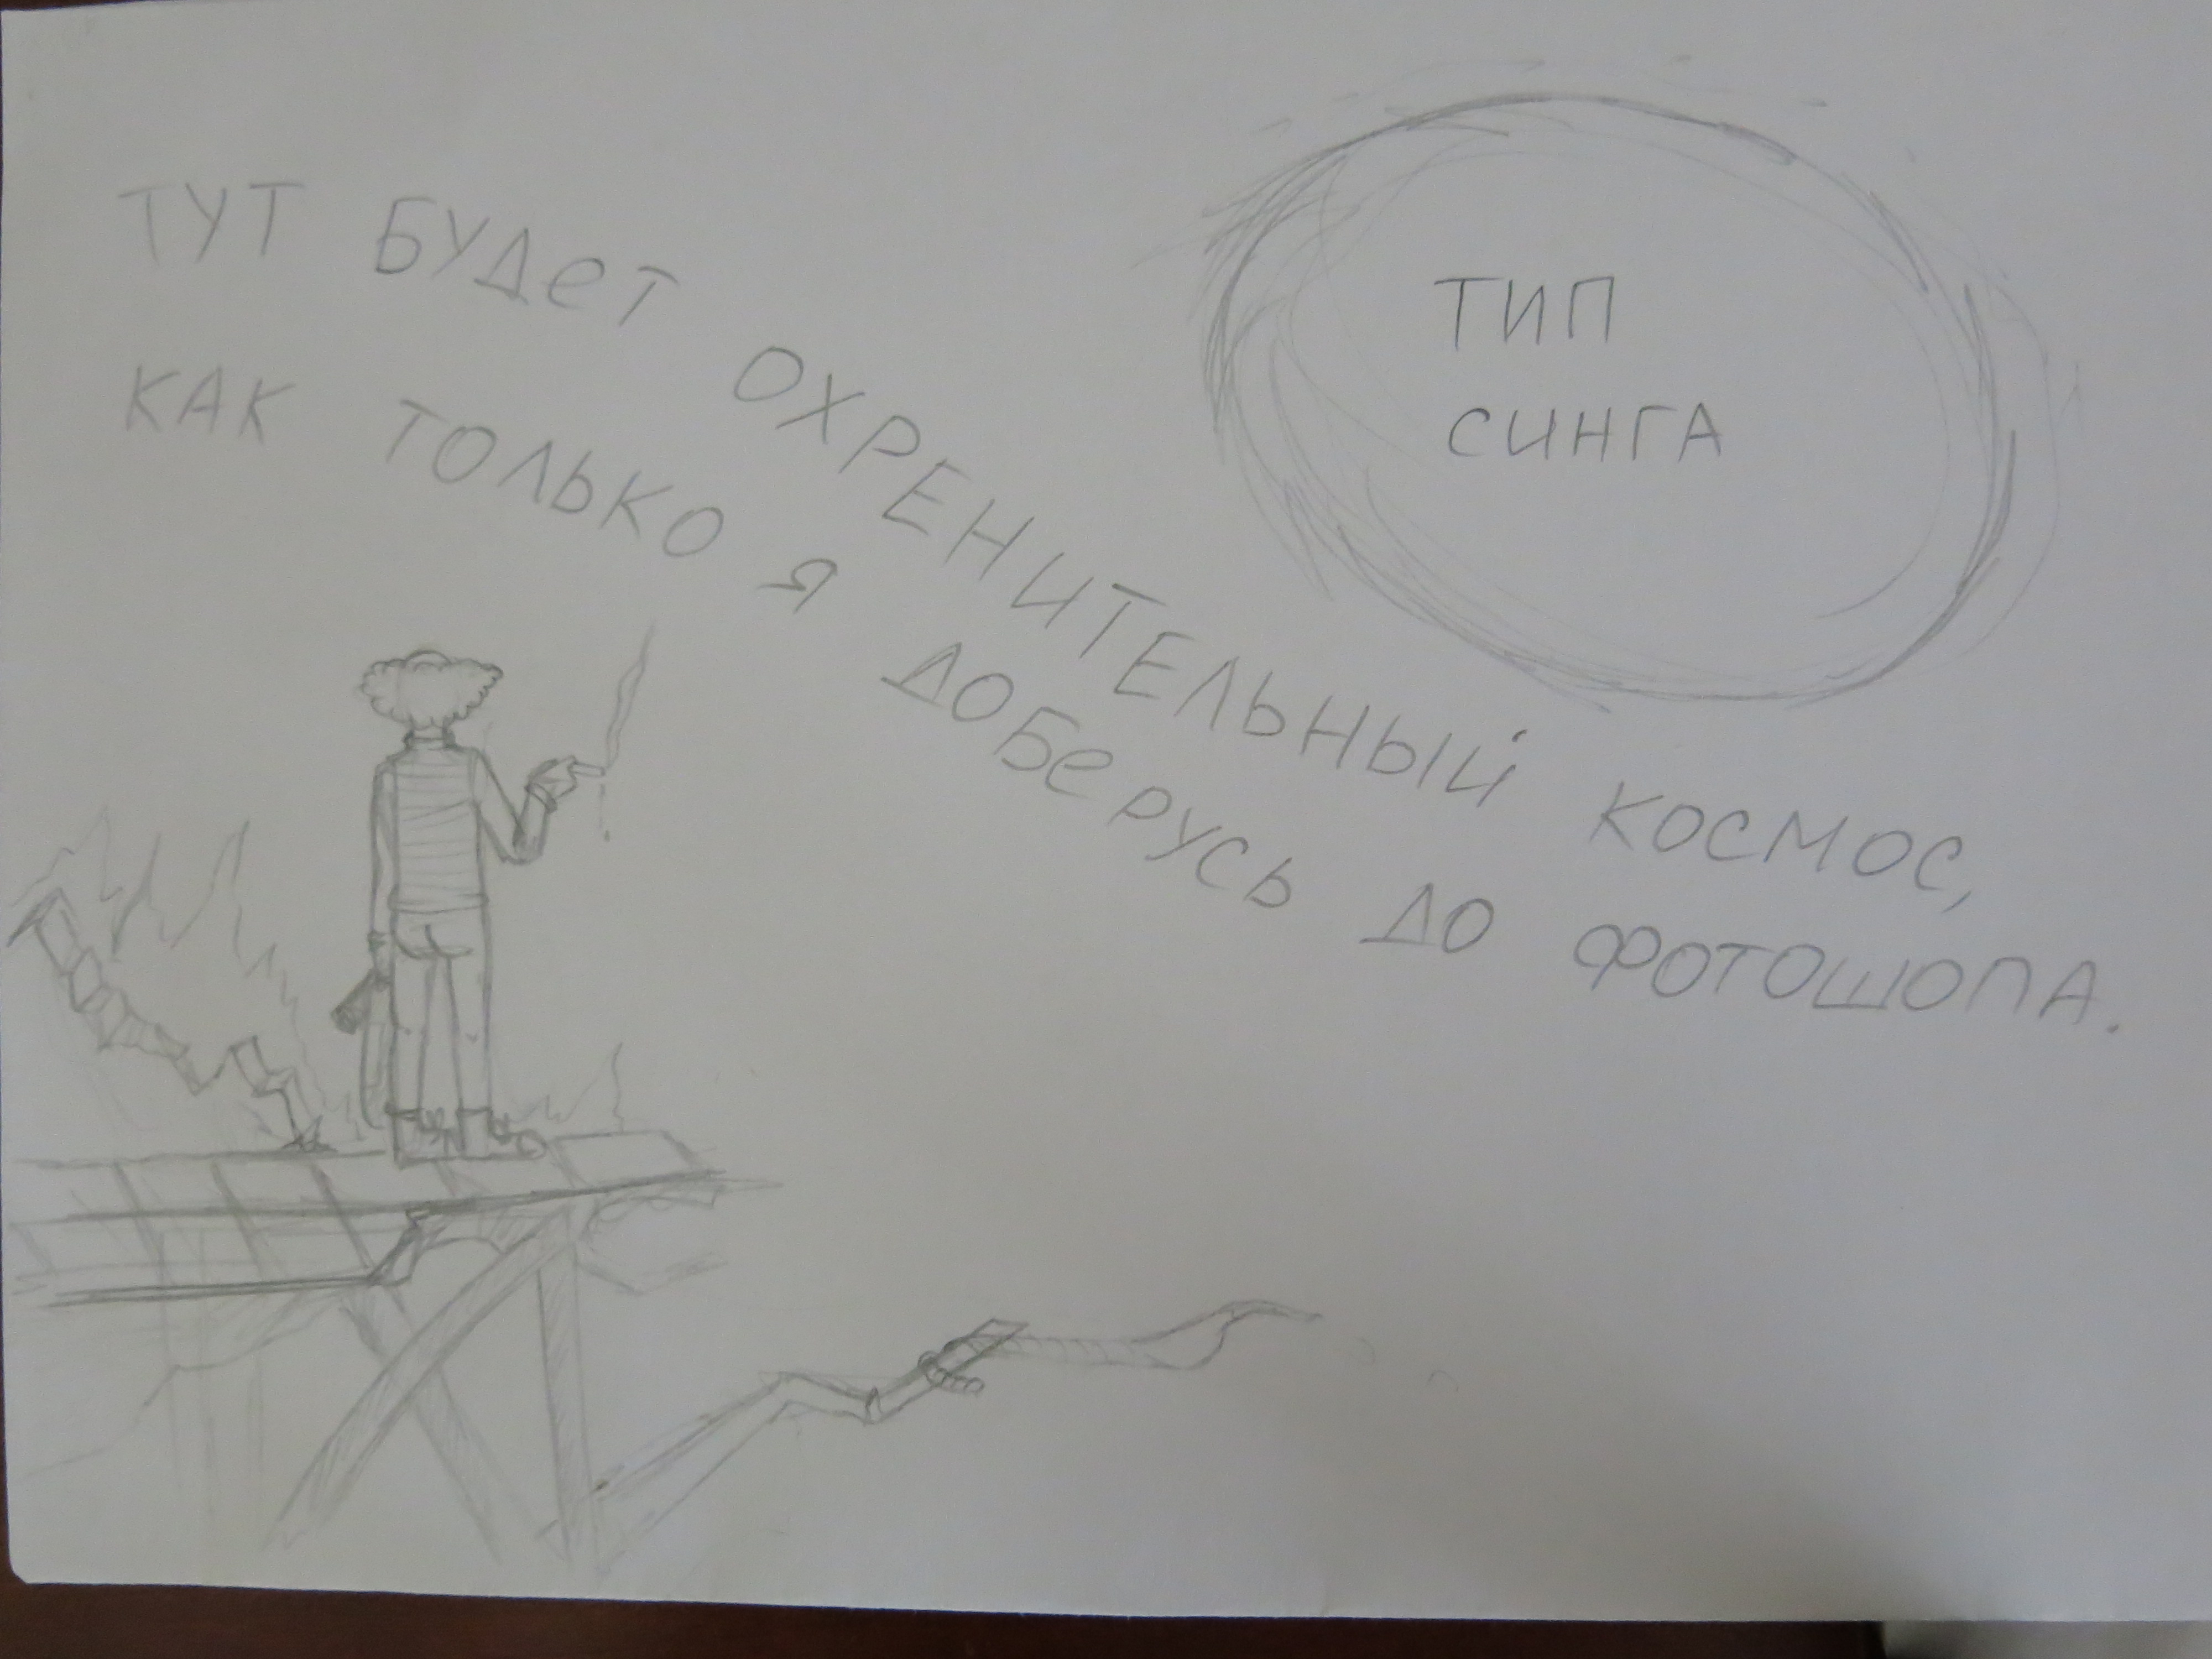 ТУТ БУДЕТ ОХРЕНИТЕЛЬНЫЙ КОСМОС,
КАК ТОЛЬКО Я ДОБЕРУСЬ ДО ФОТОШОПА.
ТИП
СИНГА